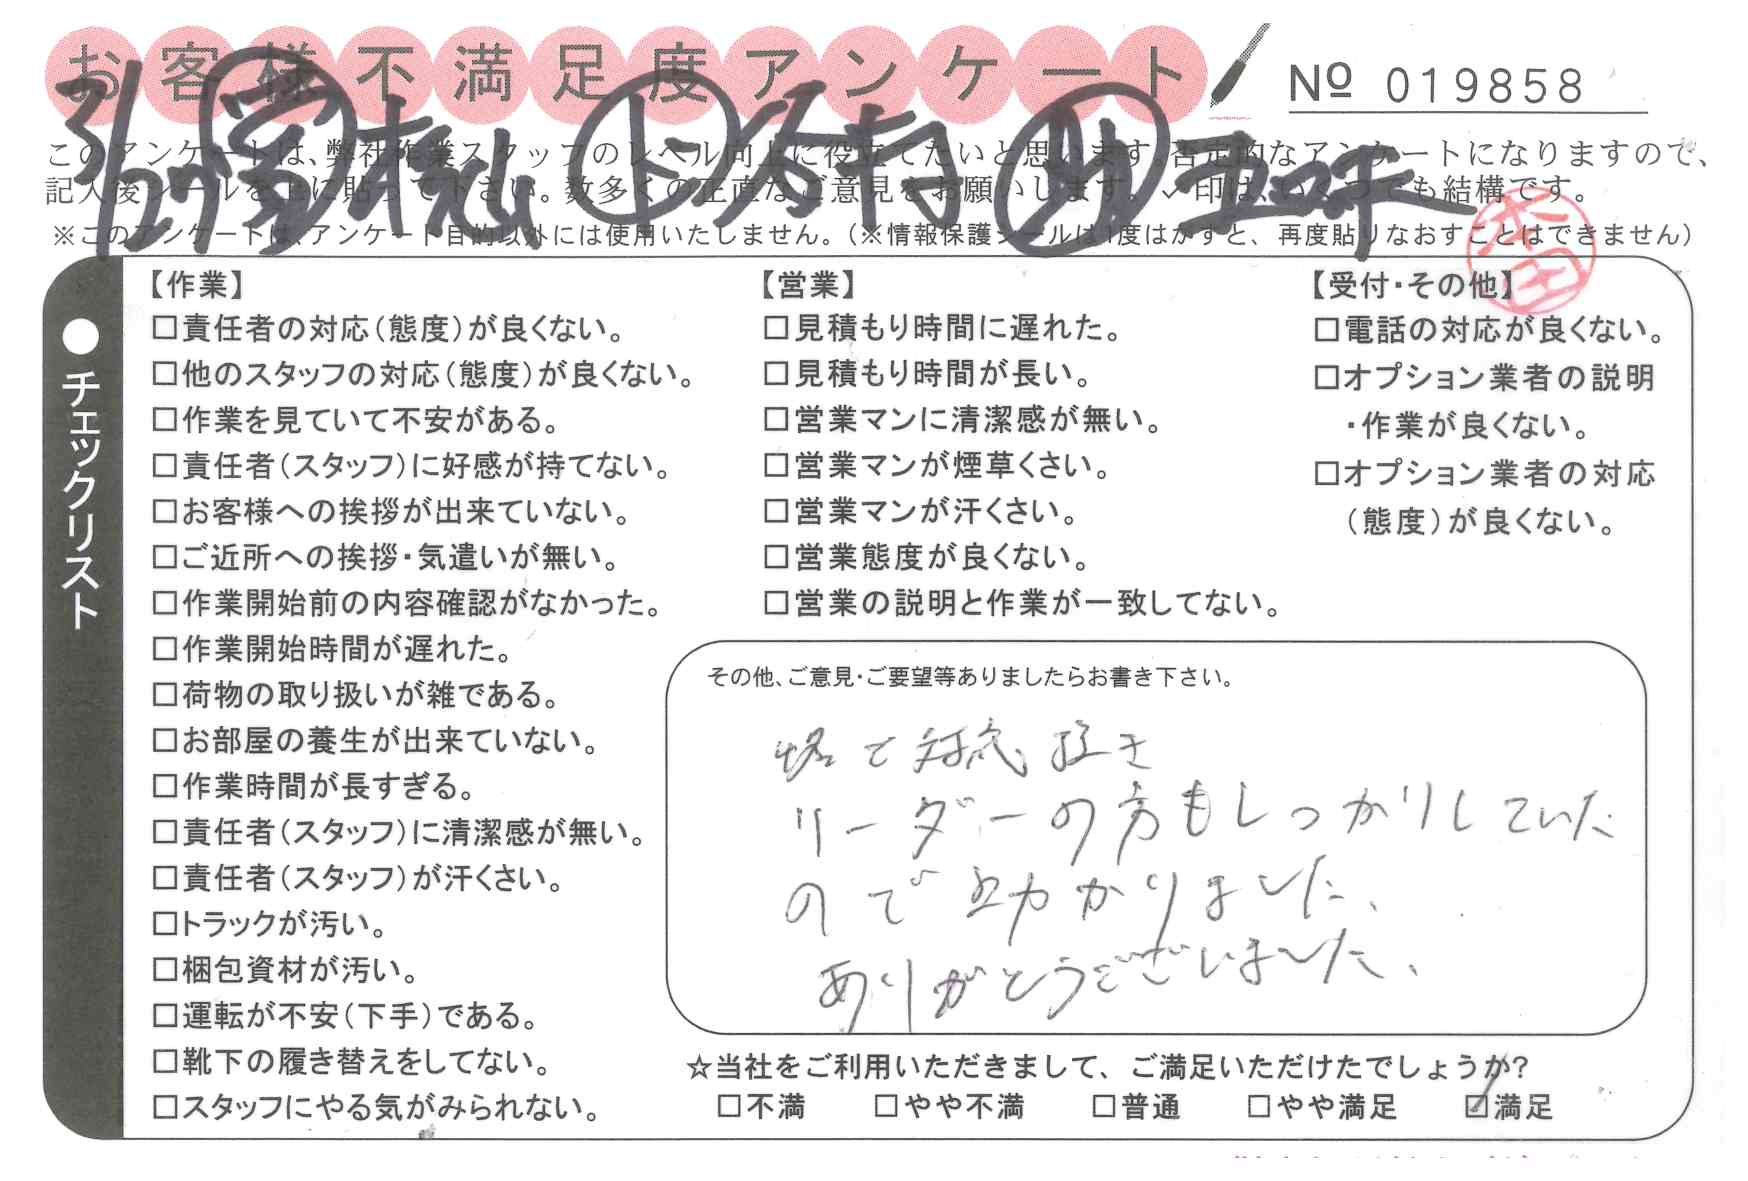 お客様不満足度アンケート
№ 019858
3/27 営 杉山 ト 谷村 助
このアンケートは、弊社作業スタッフのレベル向上に役立てたいと思います。否定的なアンケートになりますので、
記入後シールを上に貼って下さい。数多くの正直なご意見をお願いします。✓印は、いくつでも結構です。
※このアンケートは、アンケート目的以外には使用いたしません。(※情報保護シールは1度はがすと、再度貼りなおすことはできません)
本田
●チェックリスト
【作業】
□責任者の対応(態度)が良くない。
□他のスタッフの対応(態度)が良くない。
□作業を見ていて不安がある。
□責任者(スタッフ)に好感が持てない。
□お客様への挨拶が出来ていない。
□ご近所への挨拶・気遣いが無い。
□作業開始前の内容確認がなかった。
□作業開始時間が遅れた。
□荷物の取り扱いが雑である。
□お部屋の養生が出来ていない。
□作業時間が長すぎる。
□責任者(スタッフ)に清潔感が無い。
□責任者(スタッフ)が汗くさい。
□トラックが汚い。
□梱包資材が汚い。
□運転が不安(下手)である。
□靴下の履き替えをしてない。
□スタッフにやる気がみられない。
【営業】
□見積もり時間に遅れた。
□見積もり時間が長い。
□営業マンに清潔感が無い。
□営業マンが煙草くさい。
□営業マンが汗くさい。
□営業態度が良くない。
□営業の説明と作業が一致してない。
【受付・その他】
□電話の対応が良くない。
□オプション業者の説明
・作業が良くない。
□オプション業者の対応
(態度)が良くない。
その他、ご意見・ご要望等ありましたらお書き下さい。
リーダーの方もしっかりしていた
ので助かりました、
ありがとうございました、
☆当社をご利用いただきまして、ご満足いただけたでしょうか?
□不満 □やや不満 □普通 □やや満足 ☑満足